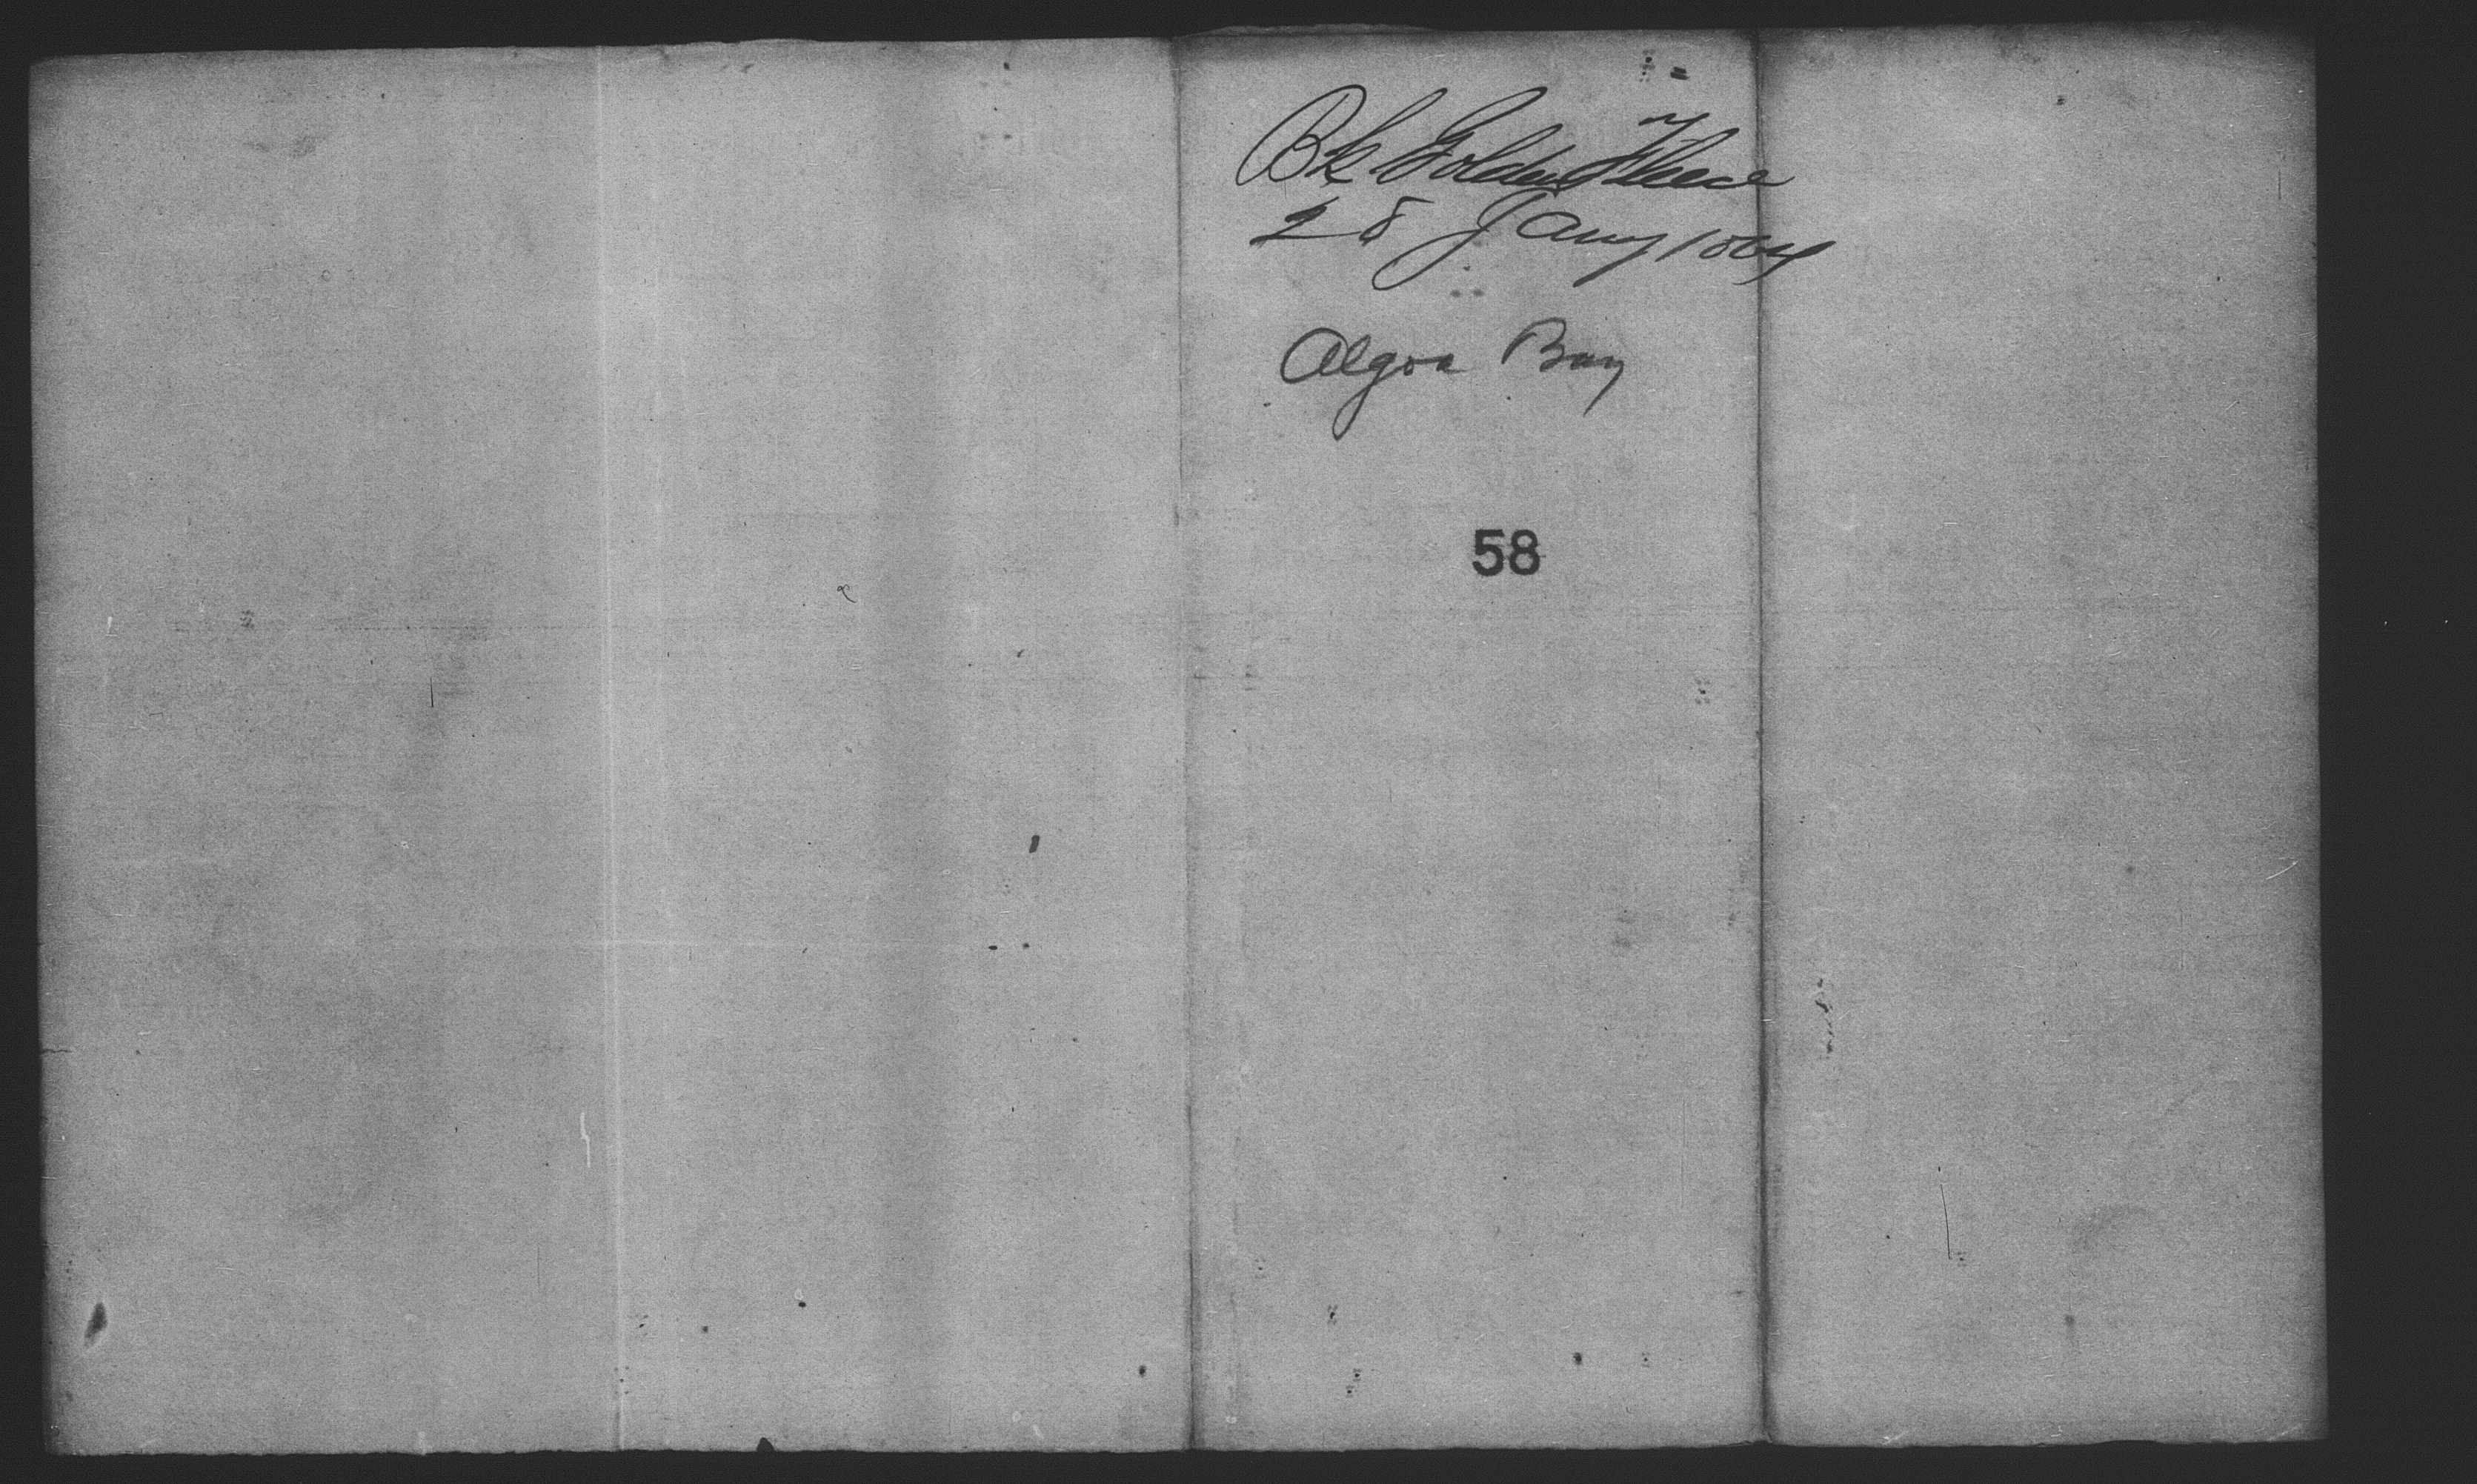 Bk Golden Fleece
28 Jany 1864
Algoa Bay
58